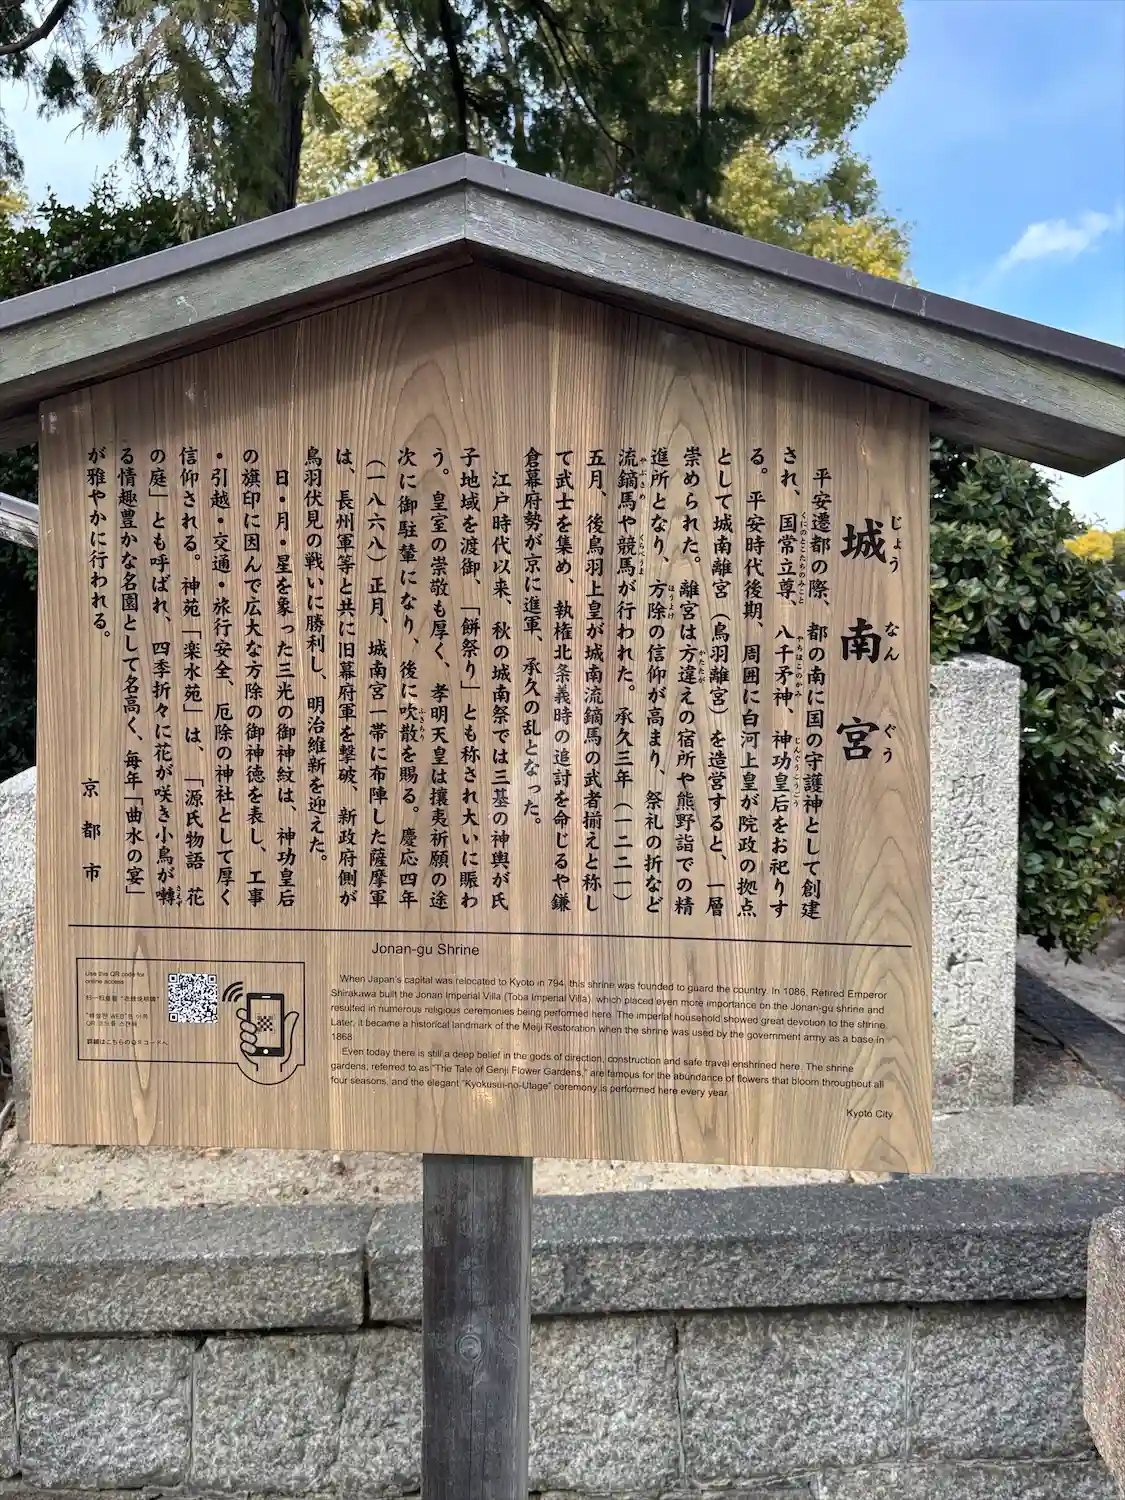 城南宮
じょうなんぐう
平安遷都の際、都の南に国の守護神として創建
され、国常立尊、八千矛神、神功皇后をお祀りす
くにのとこたちのみこと
やちほこのかみ
じんぐうこうごう
る。平安時代後期、周囲に白河上皇が院政の拠点
として城南離宮（鳥羽離宮）を造営すると、一層
崇められた。離宮は方違えの宿所や熊野詣での精
かたたが
進所となり、方除の信仰が高まり、祭礼の折など
ほうよけ
流鏑馬や競馬が行われた。承久三年（一二二一）
やぶさめ
くらべうま
五月、後鳥羽上皇が城南流鏑馬の武者揃えと称し
て武士を集め、執権北条義時の追討を命じるや鎌
倉幕府勢が京に進軍、承久の乱となった。
江戸時代以来、秋の城南祭では三基の神輿が氏
子地域を渡御、「餅祭り」とも称され大いに賑わ
う。皇室の崇敬も厚く、孝明天皇は攘夷祈願の途
次に御駐輦になり、後に吹散を賜る。慶応四年
ふきちり
（一八六八）正月、城南宮一帯に布陣した薩摩軍
は、長州軍等と共に旧幕府軍を撃破、新政府側が
鳥羽伏見の戦いに勝利し、明治維新を迎えた。
日・月・星を象った三光の御神紋は、神功皇后
の旗印に因んで広大な方除の御神徳を表し、工事
・引越・交通・旅行安全、厄除の神社として厚く
信仰される。神苑「楽水苑」は、「源氏物語 花
の庭」とも呼ばれ、四季折々に花が咲き小鳥が囀
さえず
る情趣豊かな名園として名高く、毎年「曲水の宴」
が雅やかに行われる。
京都市
Jonan-gu Shrine
When Japan's capital was relocated to Kyoto in 794, this shrine was founded to guard the country. In 1086, Retired Emperor
Shirakawa built the Jonan Imperial Villa (Toba Imperial Villa), which placed even more importance on the Jonan-gu shrine and
resulted in numerous religious ceremonies being performed here. The imperial household showed great devotion to the shrine.
Later, it became a historical landmark of the Meiji Restoration when the shrine was used by the government army as a base in
1868.
Even today there is still a deep belief in the gods of direction, construction and safe travel enshrined here. The shrine
gardens, referred to as "The Tale of Genji Flower Gardens," are famous for the abundance of flowers that bloom throughout all
four seasons, and the elegant "Kyokusui-no-Utage" ceremony is performed here every year.
Kyoto City
Use this QR code for
online access
詳細はこちらのQRコードへ